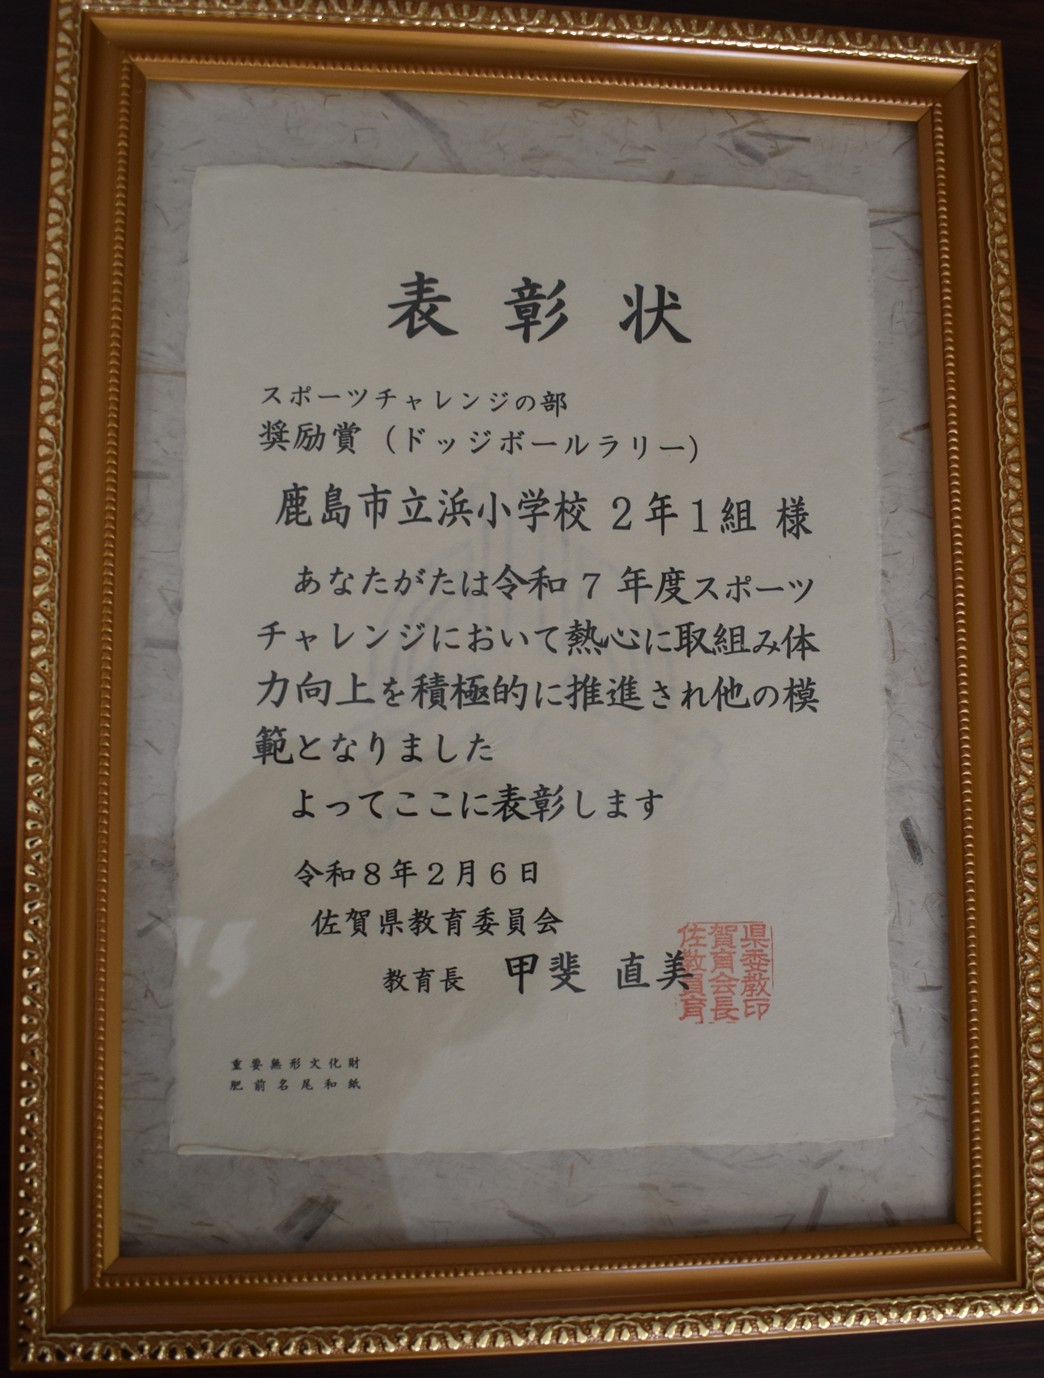 表彰状
スポーツチャレンジの部
奨励賞（ドッジボールラリー）
鹿島市立浜小学校 2年1組 様
あなたがたは令和7年度スポーツ
チャレンジにおいて熱心に取組み体
力向上を積極的に推進され他の模
範となりました
よってここに表彰します
令和8年2月6日
佐賀県教育委員会
教育長 甲斐 直美
佐賀県
教育委
員会教
育長印
重要無形文化財
肥前名尾和紙